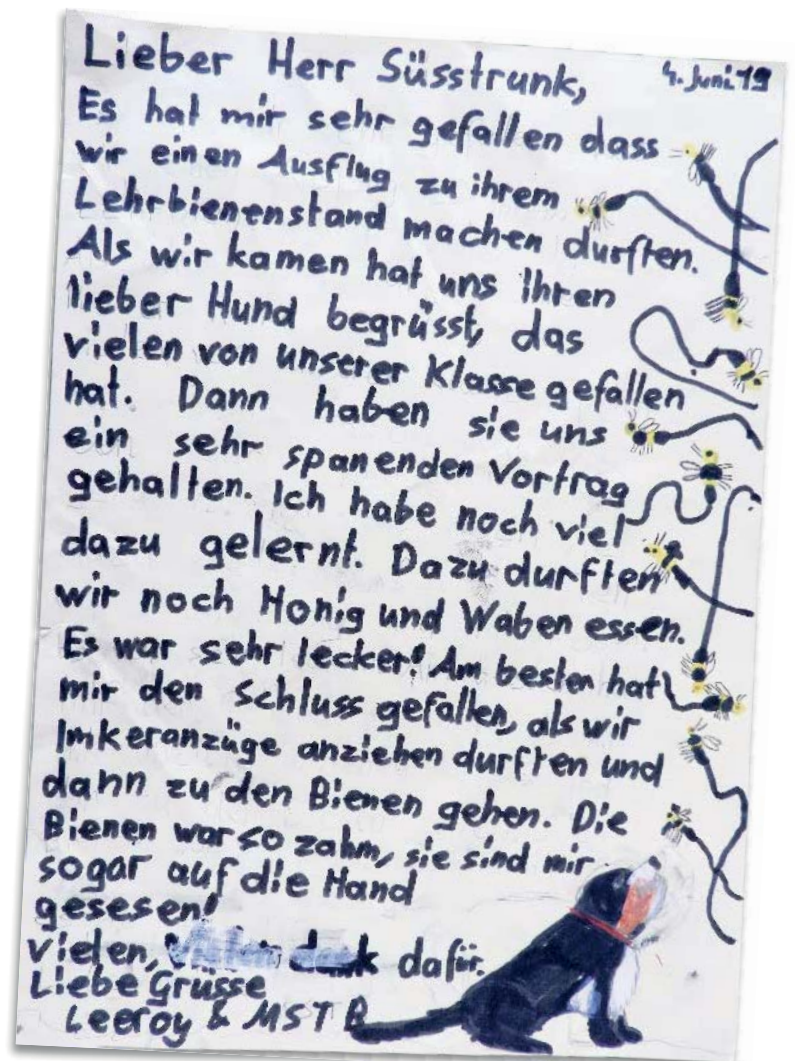 Lieber Herr Süsstrunk,
4. Juni 19
Es hat mir sehr gefallen dass
wir einen Ausflug zu ihrem
Lehrbienenstand machen durften.
Als wir kamen hat uns Ihren
lieber Hund begrüsst, das
vielen von unserer Klasse gefallen
hat. Dann haben sie uns
ein sehr spanenden Vortrag
gehalten. Ich habe noch viel
dazu gelernt. Dazu durften
wir noch Honig und Waben essen.
Es war sehr lecker! Am besten hat
mir den Schluss gefallen, als wir
Imkeranzüge anziehen durften und
dann zu den Bienen gehen. Die
Bienen war so zahm, sie sind mir
sogar auf die Hand
gesesen!
vielen, dank dafür.
Liebe Grüsse
Leeroy & MST B